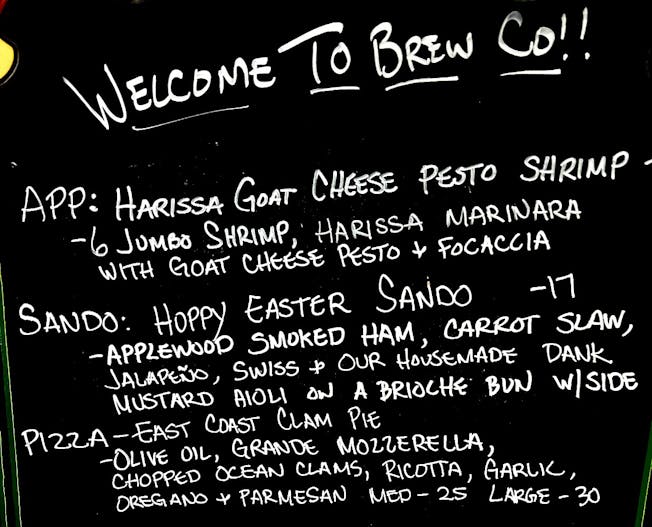 WELCOME TO BREW CO!!
APP: HARISSA GOAT CHEESE PESTO SHRIMP -
-6 JUMBO SHRIMP, HARISSA MARINARA
WITH GOAT CHEESE PESTO + FOCACCIA
SANDO: HOPPY EASTER SANDO -17
-APPLEWOOD SMOKED HAM, CARROT SLAW,
JALAPEÑO, SWISS + OUR HOUSEMADE DANK
MUSTARD AIOLI ON A BRIOCHE BUN W/SIDE
PIZZA--EAST COAST CLAM PIE
-OLIVE OIL, GRANDE MOZZERELLA,
CHOPPED OCEAN CLAMS, RICOTTA, GARLIC,
OREGANO + PARMESAN MED-25 LARGE-30